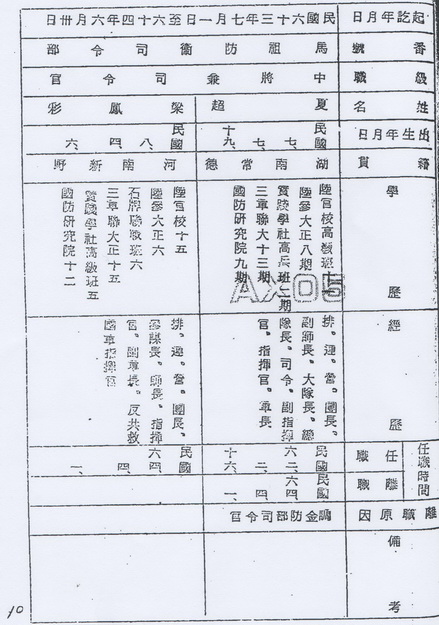 起訖年月日
民國六十三年七月一日至六十四年六月卅日
番號
馬祖防衛司令部
職級
中將兼司令官
姓名
夏超
梁鳳彩
出生年月日
民國七、七、十九、
民國八、四、六、
籍貫
湖南常德
河南新野
學歷
陸官校高級班十二
陸參大正八期
實踐學社高兵班二期
三軍聯大十三期
國防研究院九期
陸官校十五
陸參大正六
石牌聯戰班六
三軍聯大正十五
實踐學社高級班五
國防研究院十二
經歷
排、連、營、團長、
副師長、大隊長、總
隊長、司令、副指揮
官、指揮官、軍長
排、連、營、團長、
參謀長、師長、指揮
官、副軍長、反共救
國軍指揮官
任職時間
任職
民國六二、二、十六、
民國六四、四、一、
離職
民國六四、四、一、
離職原因
調金防部司令官
備考
AX05
10